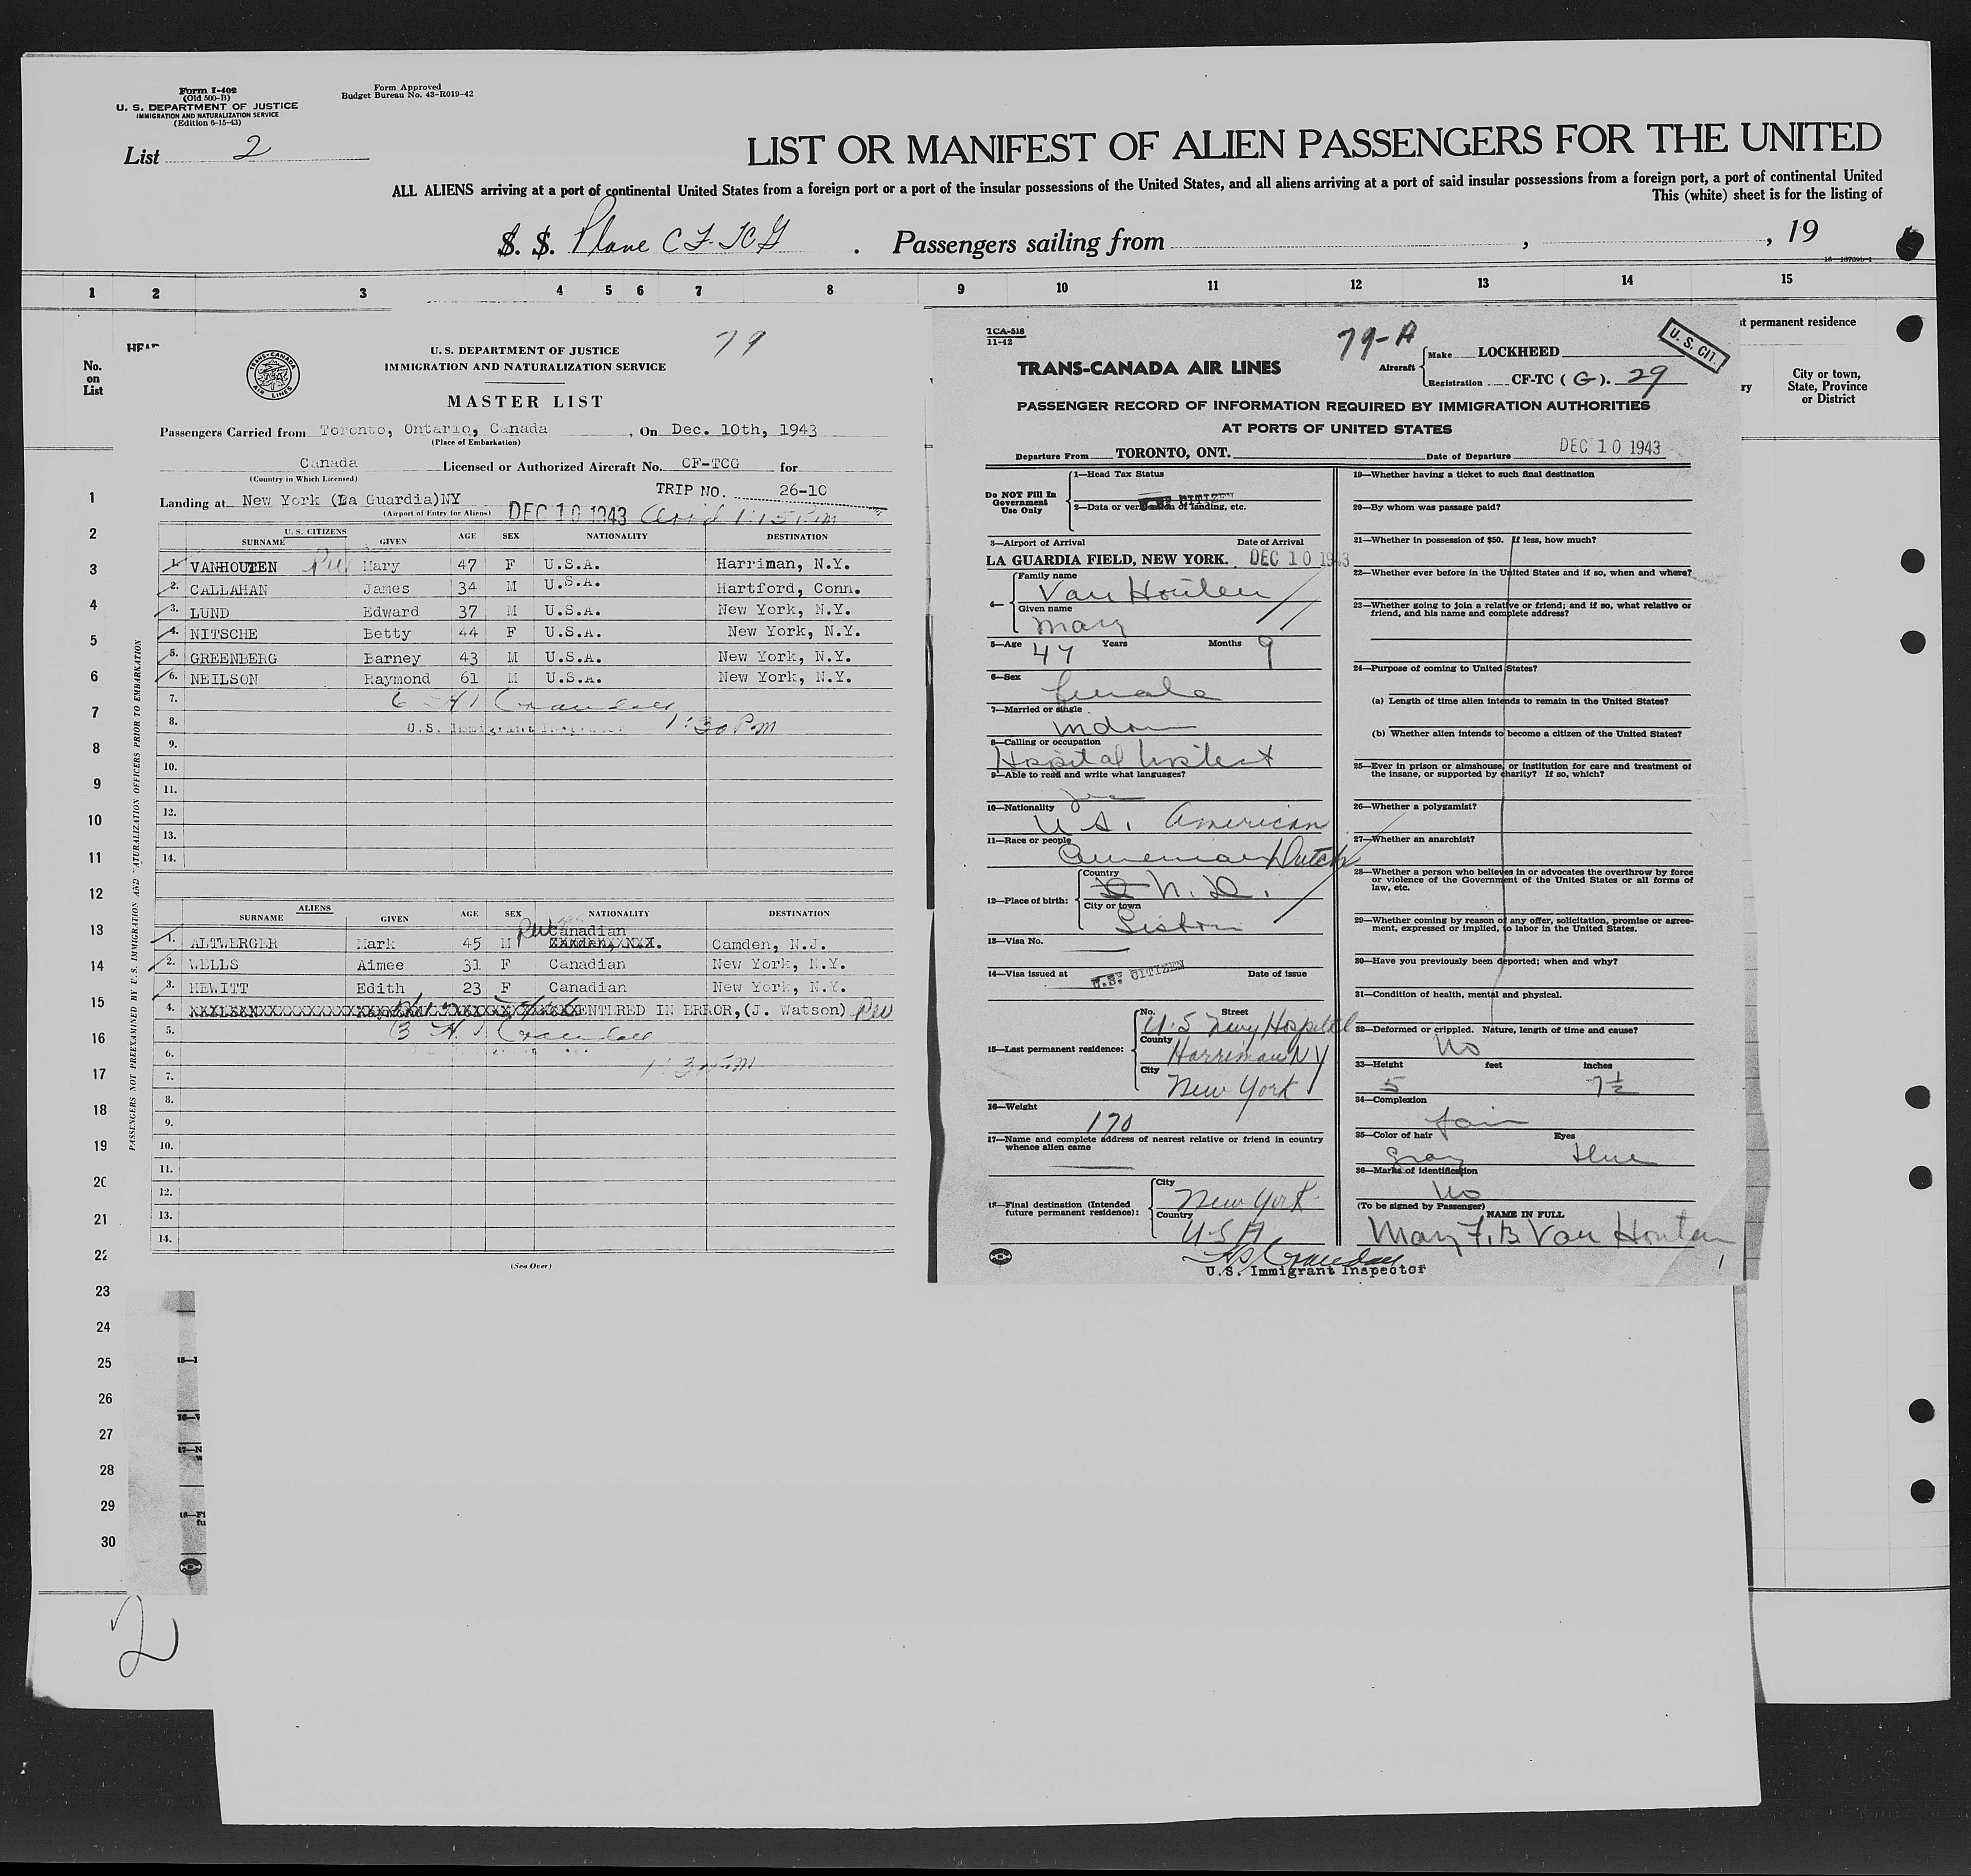 Form I-402
(Old 500-B)
U. S. DEPARTMENT OF JUSTICE
IMMIGRATION AND NATURALIZATION SERVICE
(Edition 6-15-43)
Form Approved
Budget Bureau No. 43-R019-42
List 2
LIST OR MANIFEST OF ALIEN PASSENGERS FOR THE UNITED
ALL ALIENS arriving at a port of continental United States from a foreign port or a port of the insular possessions of the United States, and all aliens arriving at a port of said insular possessions from a foreign port, a port of continental United
This (white) sheet is for the listing of
S. S. Plane CF-TCG . Passengers sailing from , , 19
1 2 3 4 5 6 7 8 9 10 11 12 13 14 15
No.
on
List
t permanent residence
City or town,
State, Province
or District
PASSENGERS NOT PREEXAMINED BY U.S. IMMIGRATION AND NATURALIZATION OFFICERS PRIOR TO EMBARKATION
79
U. S. DEPARTMENT OF JUSTICE
IMMIGRATION AND NATURALIZATION SERVICE
MASTER LIST
Passengers Carried from Toronto, Ontario, Canada, On Dec. 10th, 1943
(Place of Embarkation)
Canada Licensed or Authorized Aircraft No. CF-TCG for
(Country in Which Licensed)
TRIP NO. 26-10
Landing at New York (La Guardia)NY DEC 10 1943 Arrd 1:15 P.m
(Airport of Entry for Aliens)
U. S. CITIZENS
SURNAME GIVEN AGE SEX NATIONALITY DESTINATION
1. VANHOUTEN Mary 47 F U.S.A. Harriman, N.Y.
2. CALLAHAN James 34 M U.S.A. Hartford, Conn.
3. LUND Edward 37 M U.S.A. New York, N.Y.
4. NITSCHE Betty 44 F U.S.A. New York, N.Y.
5. GREENBERG Barney 43 M U.S.A. New York, N.Y.
6. NEILSON Raymond 61 M U.S.A. New York, N.Y.
7.
8. U.S. Immigrant Inspector 1:30 PM
9.
10.
11.
12.
13.
14.
ALIENS
SURNAME GIVEN AGE SEX NATIONALITY DESTINATION
1. ALTWERGER Mark 45 M Canadian Camden, N.J.
2. WELLS Aimee 31 F Canadian New York, N.Y.
3. HEWITT Edith 23 F Canadian New York, N.Y.
4. ENTERED IN ERROR,(J. Watson)
5.
6.
7.
8.
9.
10.
11.
12.
13.
14.
(See Over)
TCA-518
11-42
79-A
U. S. CIT.
TRANS-CANADA AIR LINES
Aircraft Make LOCKHEED
Registration CF-TC (G). 29
PASSENGER RECORD OF INFORMATION REQUIRED BY IMMIGRATION AUTHORITIES
AT PORTS OF UNITED STATES
Departure From TORONTO, ONT. Date of Departure DEC 10 1943
Do NOT Fill In
Government
Use Only
1—Head Tax Status
U.S. CITIZEN
2—Data or verification of landing, etc.
3—Airport of Arrival Date of Arrival
LA GUARDIA FIELD, NEW YORK. DEC 10 1943
4— Family name
Van Houten
Given name
Mary
5—Age 47 Years Months 9
6—Sex
female
7—Married or single
8—Calling or occupation
Hospital
9—Able to read and write what languages?
10—Nationality
U.S. American
11—Race or people
American Dutch
12—Place of birth: Country
N. D.
City or town
13—Visa No.
14—Visa issued at U.S. CITIZEN Date of issue
15—Last permanent residence: No. Street
U.S Navy Hospital
County
Harriman NY
City
New York
16—Weight
170
17—Name and complete address of nearest relative or friend in country
whence alien came
18—Final destination (Intended
future permanent residence): City
New York
Country
U.S.A.
U.S. Immigrant Inspector
19—Whether having a ticket to such final destination
20—By whom was passage paid?
21—Whether in possession of $50. If less, how much?
22—Whether ever before in the United States and if so, when and where?
23—Whether going to join a relative or friend; and if so, what relative or
friend, and his name and complete address?
24—Purpose of coming to United States?
(a) Length of time alien intends to remain in the United States?
(b) Whether alien intends to become a citizen of the United States?
25—Ever in prison or almshouse, or institution for care and treatment of
the insane, or supported by charity? If so, which?
26—Whether a polygamist?
27—Whether an anarchist?
28—Whether a person who believes in or advocates the overthrow by force
or violence of the Government of the United States or all forms of
law, etc.
29—Whether coming by reason of any offer, solicitation, promise or agree-
ment, expressed or implied, to labor in the United States.
30—Have you previously been deported; when and why?
31—Condition of health, mental and physical.
32—Deformed or crippled. Nature, length of time and cause?
No
33—Height feet inches
5 7½
34—Complexion
fair
35—Color of hair Eyes
gray blue
36—Marks of identification
No
(To be signed by Passenger) NAME IN FULL
Mary F. B Van Houten
1
1
2
3
4
5
6
7
8
9
10
11
12
13
14
15
16
17
18
19
20
21
22
23
24
25
26
27
28
29
30
2